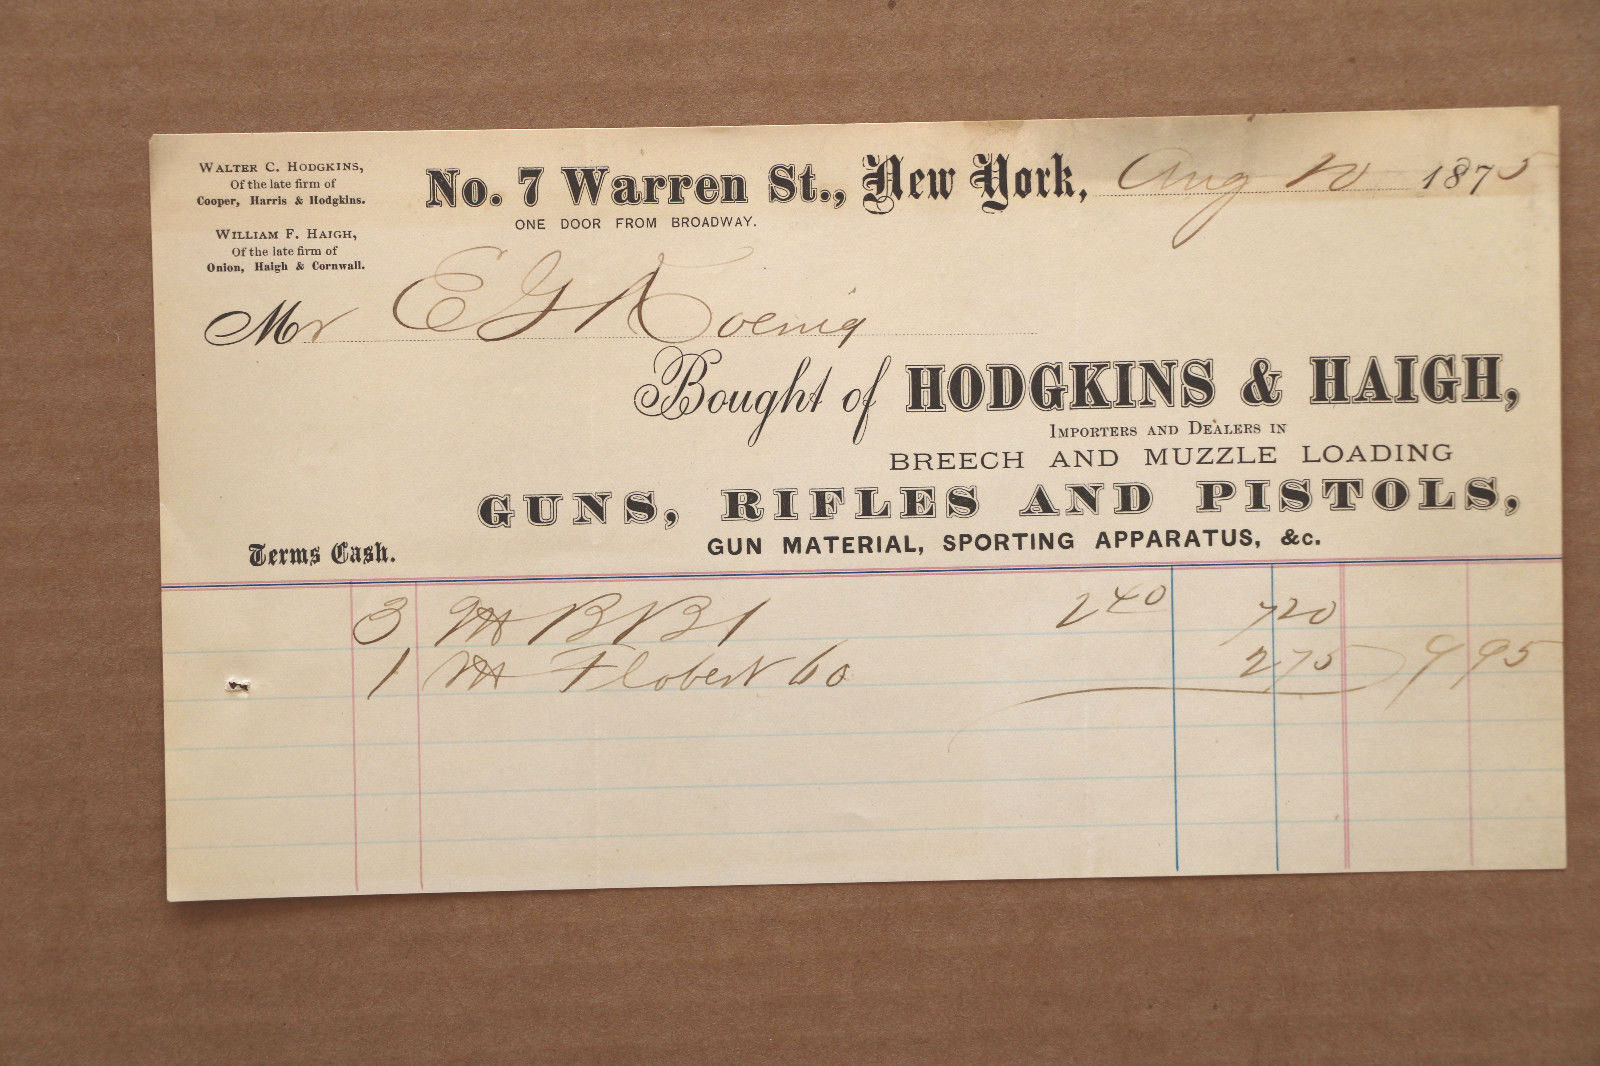 WALTER C. HODGKINS,
Of the late firm of
Cooper, Harris & Hodgkins.
WILLIAM F. HAIGH,
Of the late firm of
Onion, Haigh & Cornwall.
No. 7 Warren St., New York, Aug 10 1875
ONE DOOR FROM BROADWAY.
Mr E G Koenig
Bought of HODGKINS & HAIGH,
IMPORTERS AND DEALERS IN
BREECH AND MUZZLE LOADING
GUNS, RIFLES AND PISTOLS,
GUN MATERIAL, SPORTING APPARATUS, &c.
Terms Cash.
3 M BB 1 2 40 7 20
1 M Flobert 2 75 9 95